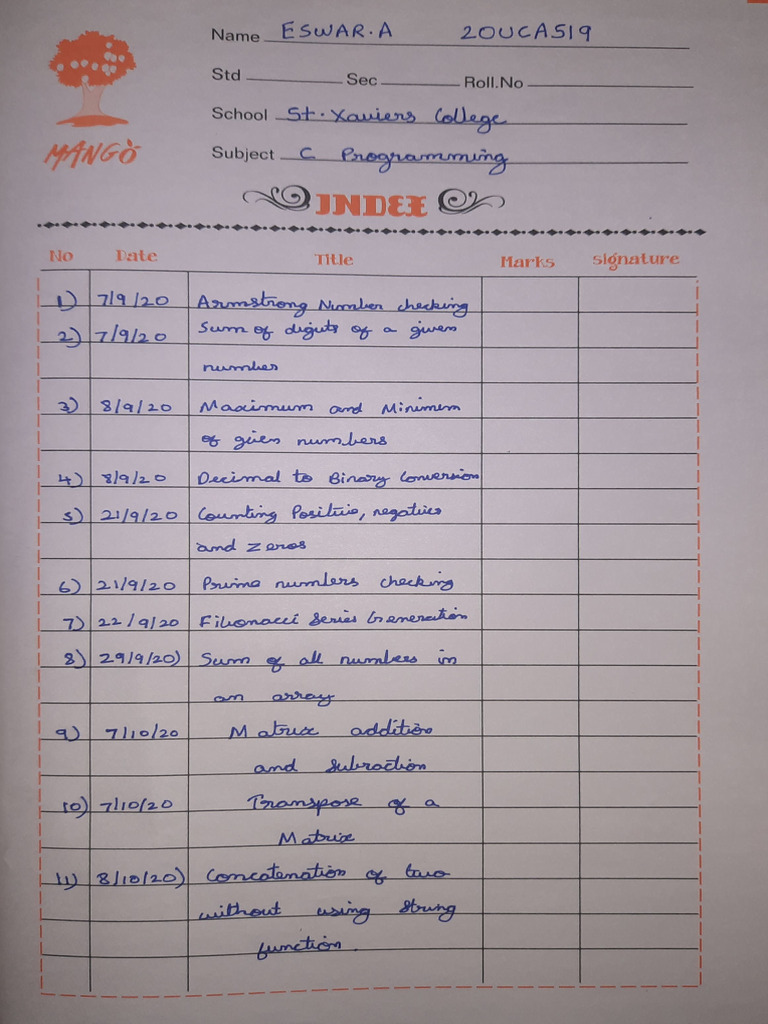 Name ESWAR.A 20UCA519
Std Sec Roll.No
School St. Xaviers College
Subject C Programming
MANGO
INDEX
No Date Title Marks signature
1) 7/9/20 Armstrong Number checking
2) 7/9/20 Sum of digits of a given
number
3) 8/9/20 Maximum and Minimum
of given numbers
4) 8/9/20 Decimal to Binary Conversion
5) 21/9/20 Counting Positive, negatives
and zeros
6) 21/9/20 Prime numbers checking
7) 22/9/20 Fibonacci Series Generation
8) 29/9/20) Sum of all numbers in
an array
9) 7/10/20 Matrix addition
and Subraction
10) 7/10/20 Transpose of a
Matrix
11) 8/10/20) Concatenation of two
without using string
function.